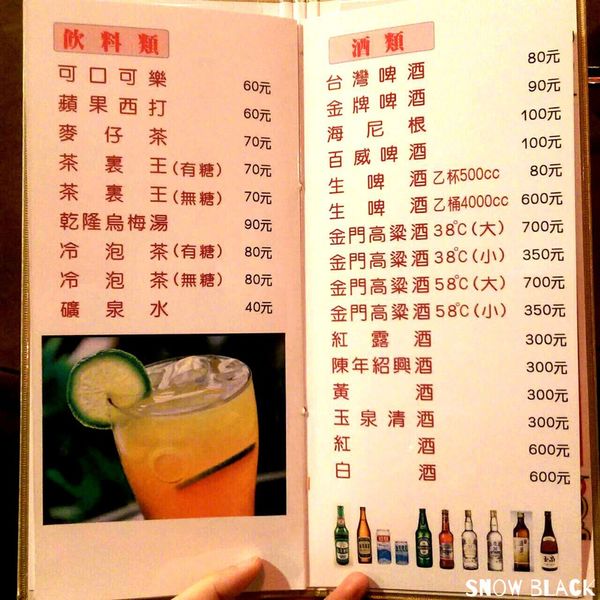 飲料類
可口可樂 60元
蘋果西打 60元
麥仔茶 70元
茶裏王(有糖) 70元
茶裏王(無糖) 70元
乾隆烏梅湯 90元
冷泡茶(有糖) 80元
冷泡茶(無糖) 80元
礦泉水 40元
酒類
台灣啤酒 80元
金牌啤酒 90元
海尼根 100元
百威啤酒 100元
生啤酒乙杯500cc 80元
生啤酒乙桶4000cc 600元
金門高粱酒38℃(大) 700元
金門高粱酒38℃(小) 350元
金門高粱酒58℃(大) 700元
金門高粱酒58℃(小) 350元
紅露酒 300元
陳年紹興酒 300元
黃酒 300元
玉泉清酒 300元
紅酒 600元
白酒 600元
SNOW BLACK